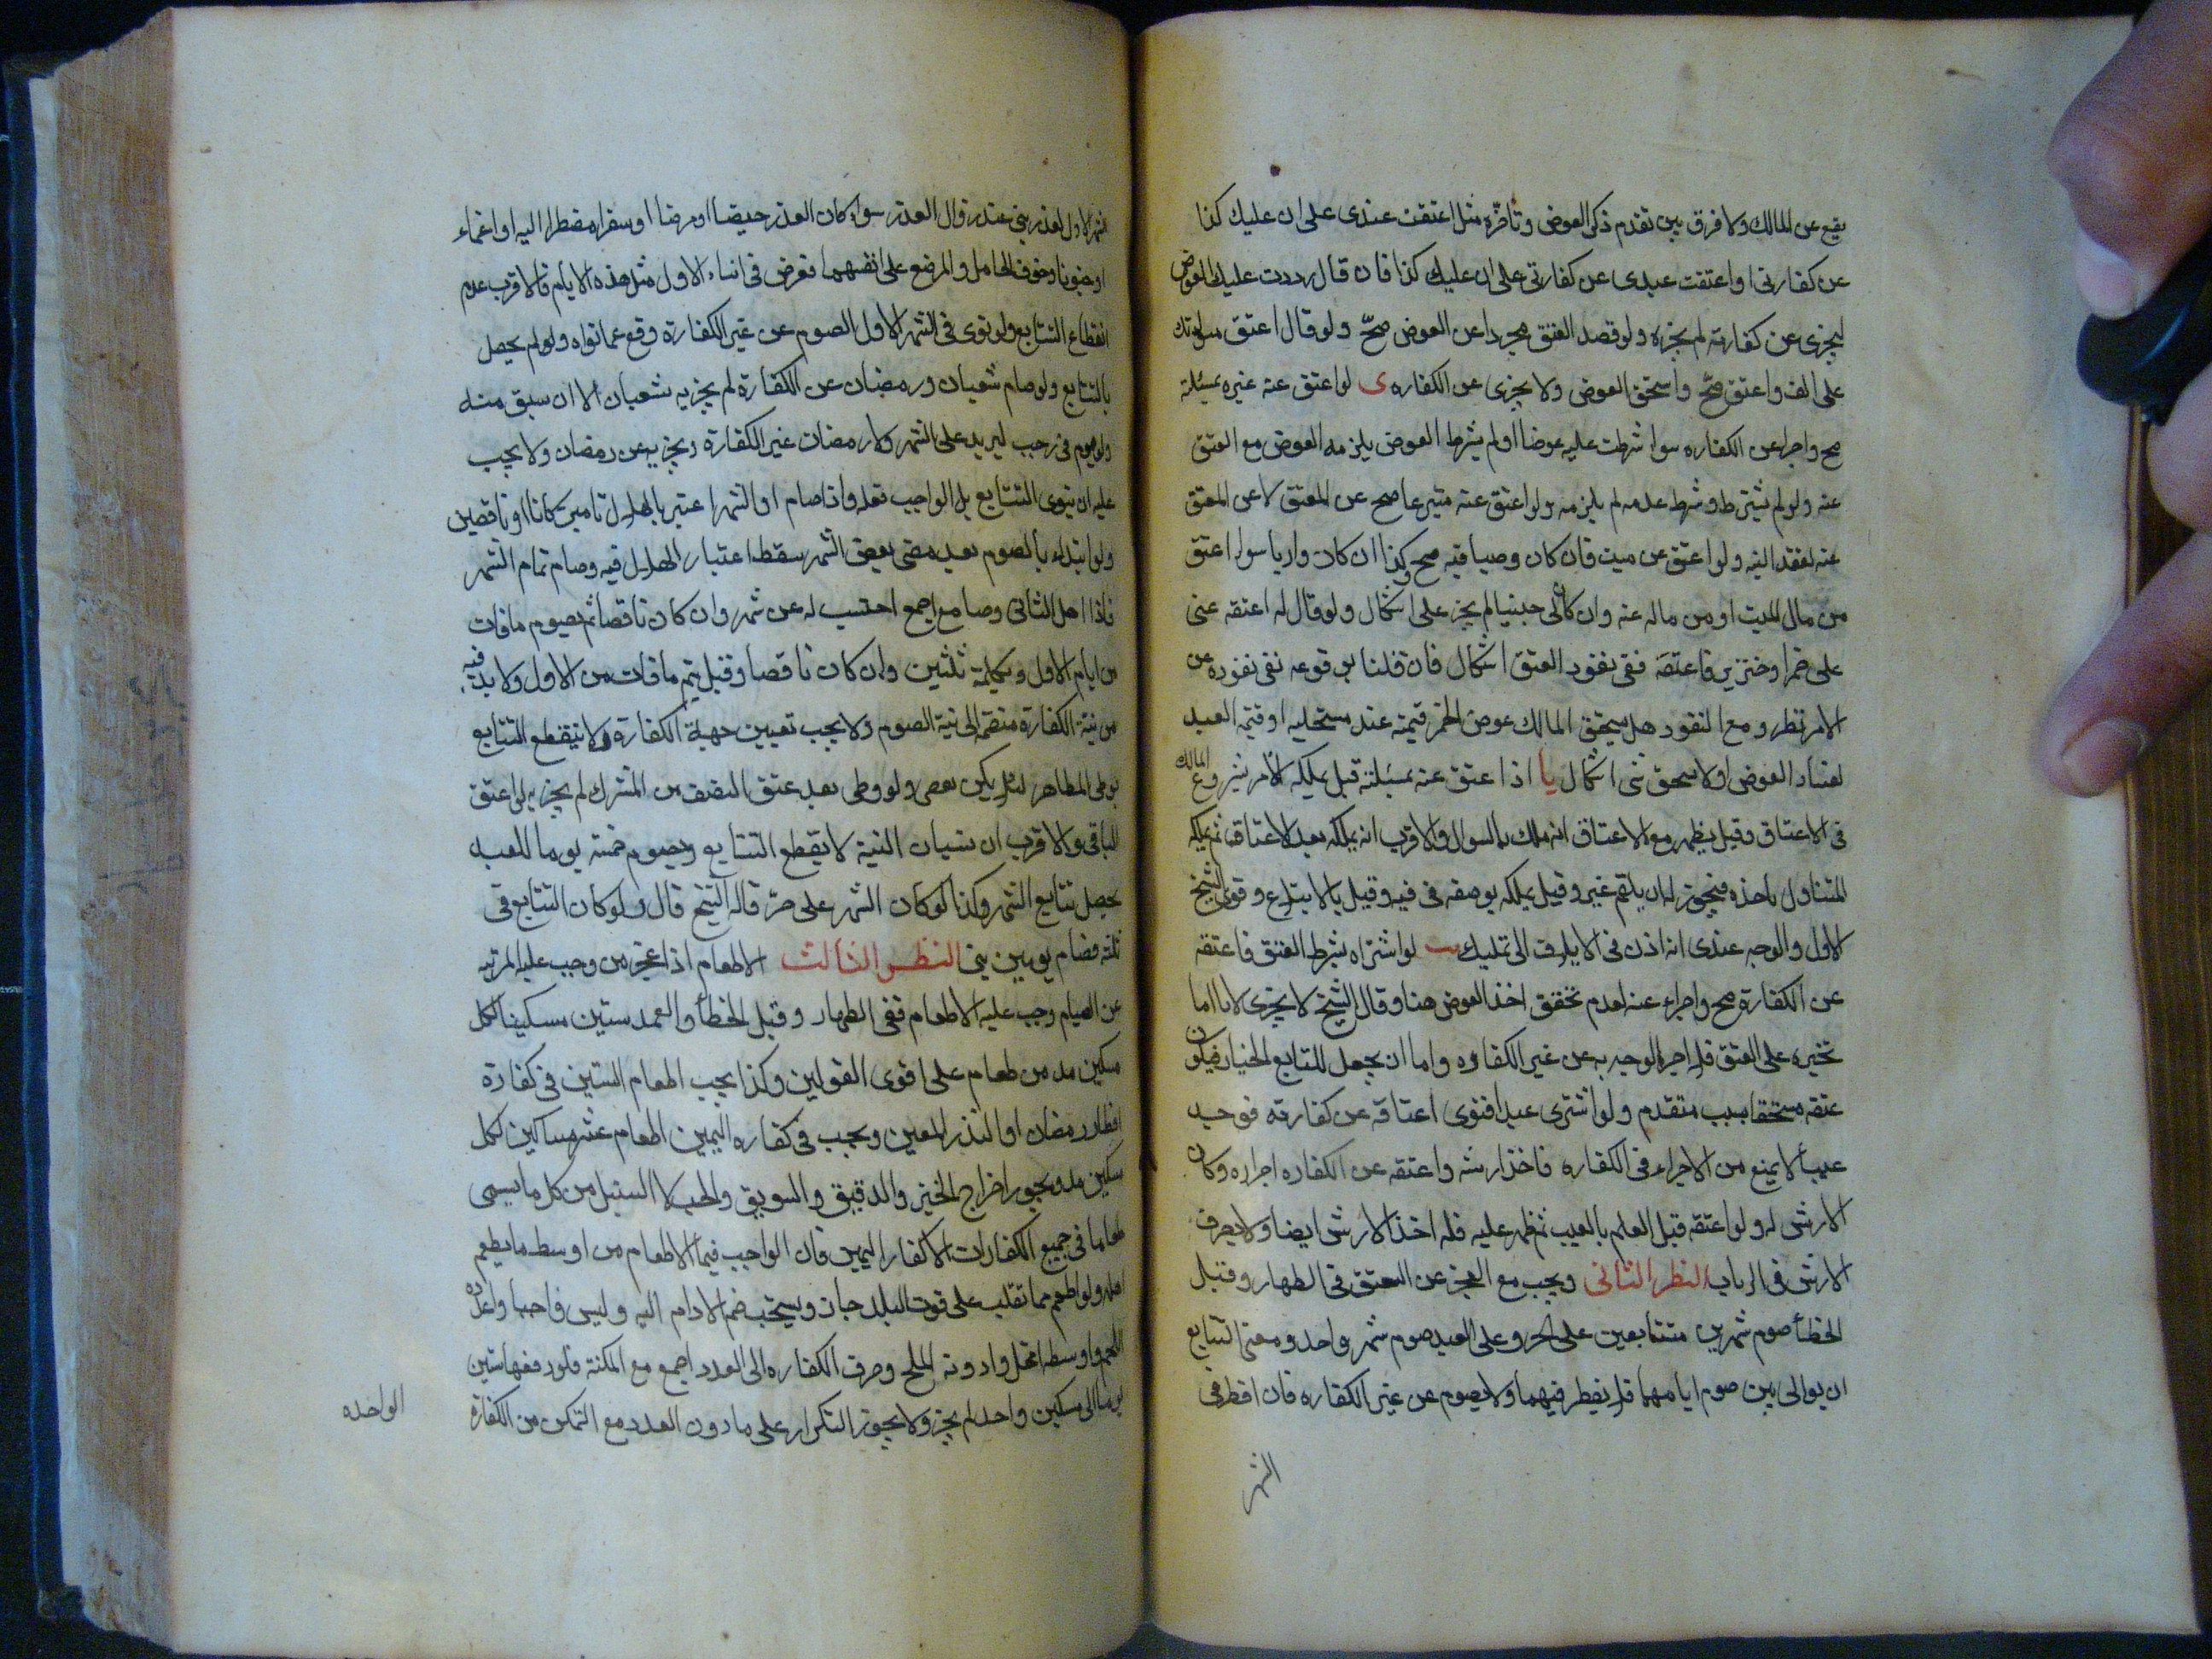 يقع عن المالك ولا فرق بين تقدم ذكر العوض وتاخره مثل اعتقت عندى على ان عليك كذا
عن كفارتى او اعتقت عبدى عن كفارتى على ان عليك كذا فان قال رددت عليك العوض
ليجزى عن كفارته لم يجزه ولو قصد العتق مجردا عن العوض صحّ ولو قال اعتق مستولدتك
على الف واعتق صحّ واستحق العوض ولا يجزى عن الكفاره ى لو اعتق عنه غيره بمسئلته
صح واجزا عن الكفاره سوا شرطت عليه عوضا او لم يشرط العوض يلزمه العوض مع العتق
عنه ولو لم يشترط وشرط عدمه لم يلزمه ولو اعتق عنه متبرعا صح عن المعتق لا عن المعتق
عنه لفقد النيه ولو اعتق عن ميت فان كان وصيا فيه صح وكذا ان كان وارثا سوا اعتق
من مال الميت او من ماله عنه وان كان اجنبيا لم يجز على اشكال ولو قال له اعتقه عنى
على خمر او خنزير فاعتقه ففى نفوذ العتق اشكال فان قلنا بوقوعه ففى نفوذه عن
الامر نظر ومع النفوذ هل يستحق المالك عوض الخمر قيمته عند مستحليه او قيمه العبد
لفساد العوض او لا يستحق شى اشكال يا اذا اعتق عنه بمسئلته قيل يملكه الآمر بشروع المالك
فى الاعتاق وقيل يظهر مع الاعتاق انه ملك بالسوال والاقرب انه يملكه بعد الاعتاق ثم يملكه
المتناول باخذه فيجوز له ان يلقم غيره وقيل يملكه بوضعه فى فيه وقيل بالابتلاع وقوى الشيخ
الاول والوجه عندى انه اذن فى الاتلاف الى تمليك يب لو اشتراه بشرط العتق فاعتقه
عن الكفارة صح واجزاء عنه لعدم تحقق اخذ العوض هنا وقال الشيخ لا يجزى لانا اما
نجبره على العتق فلا اجزا لوجوبه عن غير الكفاره واما ان يجعل للبايع الخيار فيكون
عتقه مستحقا بسبب متقدم ولو اشترى عبدا فنوى اعتاقه عن كفارته فوجد
عيبا لا يمنع من الاجزاء فى الكفاره فاخذ ارشه واعتقه عن الكفاره اجزاه وكان
الارش له ولو اعتقه قبل العلم بالعيب ثم ظهر عليه فله اخذ الارش ايضا ولا يصرف
الارش فى الرقاب النظر الثانى ويجب مع العجز عن العتق فى الظهار وقتل
الخطأ صوم شهرين متتابعين على الحر وعلى العبد صوم شهر واحد ومعنى التتابع
ان يوالى بين صوم ايامهما فلا يفطر فيهما ولا يصوم عن غير الكفاره فان افطر فى
الشهر
الشهر الاول لعذر بنى عند زوال العذر سوا كان العذر حيضا او مرضا او سفرا مضطرا اليه او اغماء
او جنونا وخوف الحامل والمرضع على انفسهما فعرض فى اثناء الاول مثل هذه الايام فالاقرب عدم
انقطاع التتابع ولو نوى فى الشهر الاول الصوم عن غير الكفارة وقع عما نواه ولو لم يحصل
بالتتابع ولو صام شعبان ورمضان عن الكفارة لم يجزيه شعبان الا ان سبق منه
ولو يوم فى رجب ليزيد على الشهر ولا رمضان غير الكفارة ويجزيه عن رمضان ولا يجب
عليه ان ينوى التتابع بل الواجب فعله واذا صام اول الشهر اعتبر بالهلال تامين كانا او ناقصين
ولو ابتداء بالصوم بعد مضى بعض الشهر سقط اعتبار الهلال فيه وصام تمام الشهر
فاذا اهل الثانى وصامه اجمع احتسب له عن شهر وان كان ناقصا ثم يصوم ما فات
من ايام الاول ويكمله ثلثين وان كان ناقصا وقيل يتم ما فات من الاول ولا بد فيه
من نية الكفارة منضمة الى نية الصوم ولا يجب تعيين جهة الكفارة ولا ينقطع التتابع
بوطى المظاهر ليلا لكن يعصى ولو وطى بعد عتق النصف من المشترك لم يجزيه لو اعتق
الباقى والاقرب ان نسيان النية لا يقطع التتابع وبصوم خمسه عشر يوما للعبد
يحصل تتابع الشهر وكذا لو كان الشهر على حرّ قاله الشيخ قال ولو كان التتابع فى
ثلثه فصام يومين بنى النظر الثالث الاطعام اذا عجز من وجب عليه المرتبه
عن الصيام وجب عليه الاطعام ففى الظهار وقتل الخطأ والعمد ستين مسكينا لكل
مسكين مد من طعام على اقوى القولين وكذا يجب اطعام الستين فى كفارة
افطار رمضان او النذر المعين ويجب فى كفاره اليمين اطعام عشره مساكين لكل
مسكين مد ويجوز اخراج الخبز والدقيق والسويق والحب لا السنبل من كل ما يسمى
طعاما فى جميع الكفارات الا كفارا اليمين فان الواجب فيها الاطعام من اوسط ما يطعم
اهله ولو اطعم مما تغلب على قوت البلد جاز ويستحب ضم الادام اليه وليس واجبا واعلاه
اللحم واوسطه الخل وادونه الملح وصرف الكفاره الى العدد اجمع مع المكنة فلو دفعها ستين
يوما الى مسكين واحد لم يجز ولا يجوز التكرار على ما دون العدد مع التمكن من الكفارة
الواحده